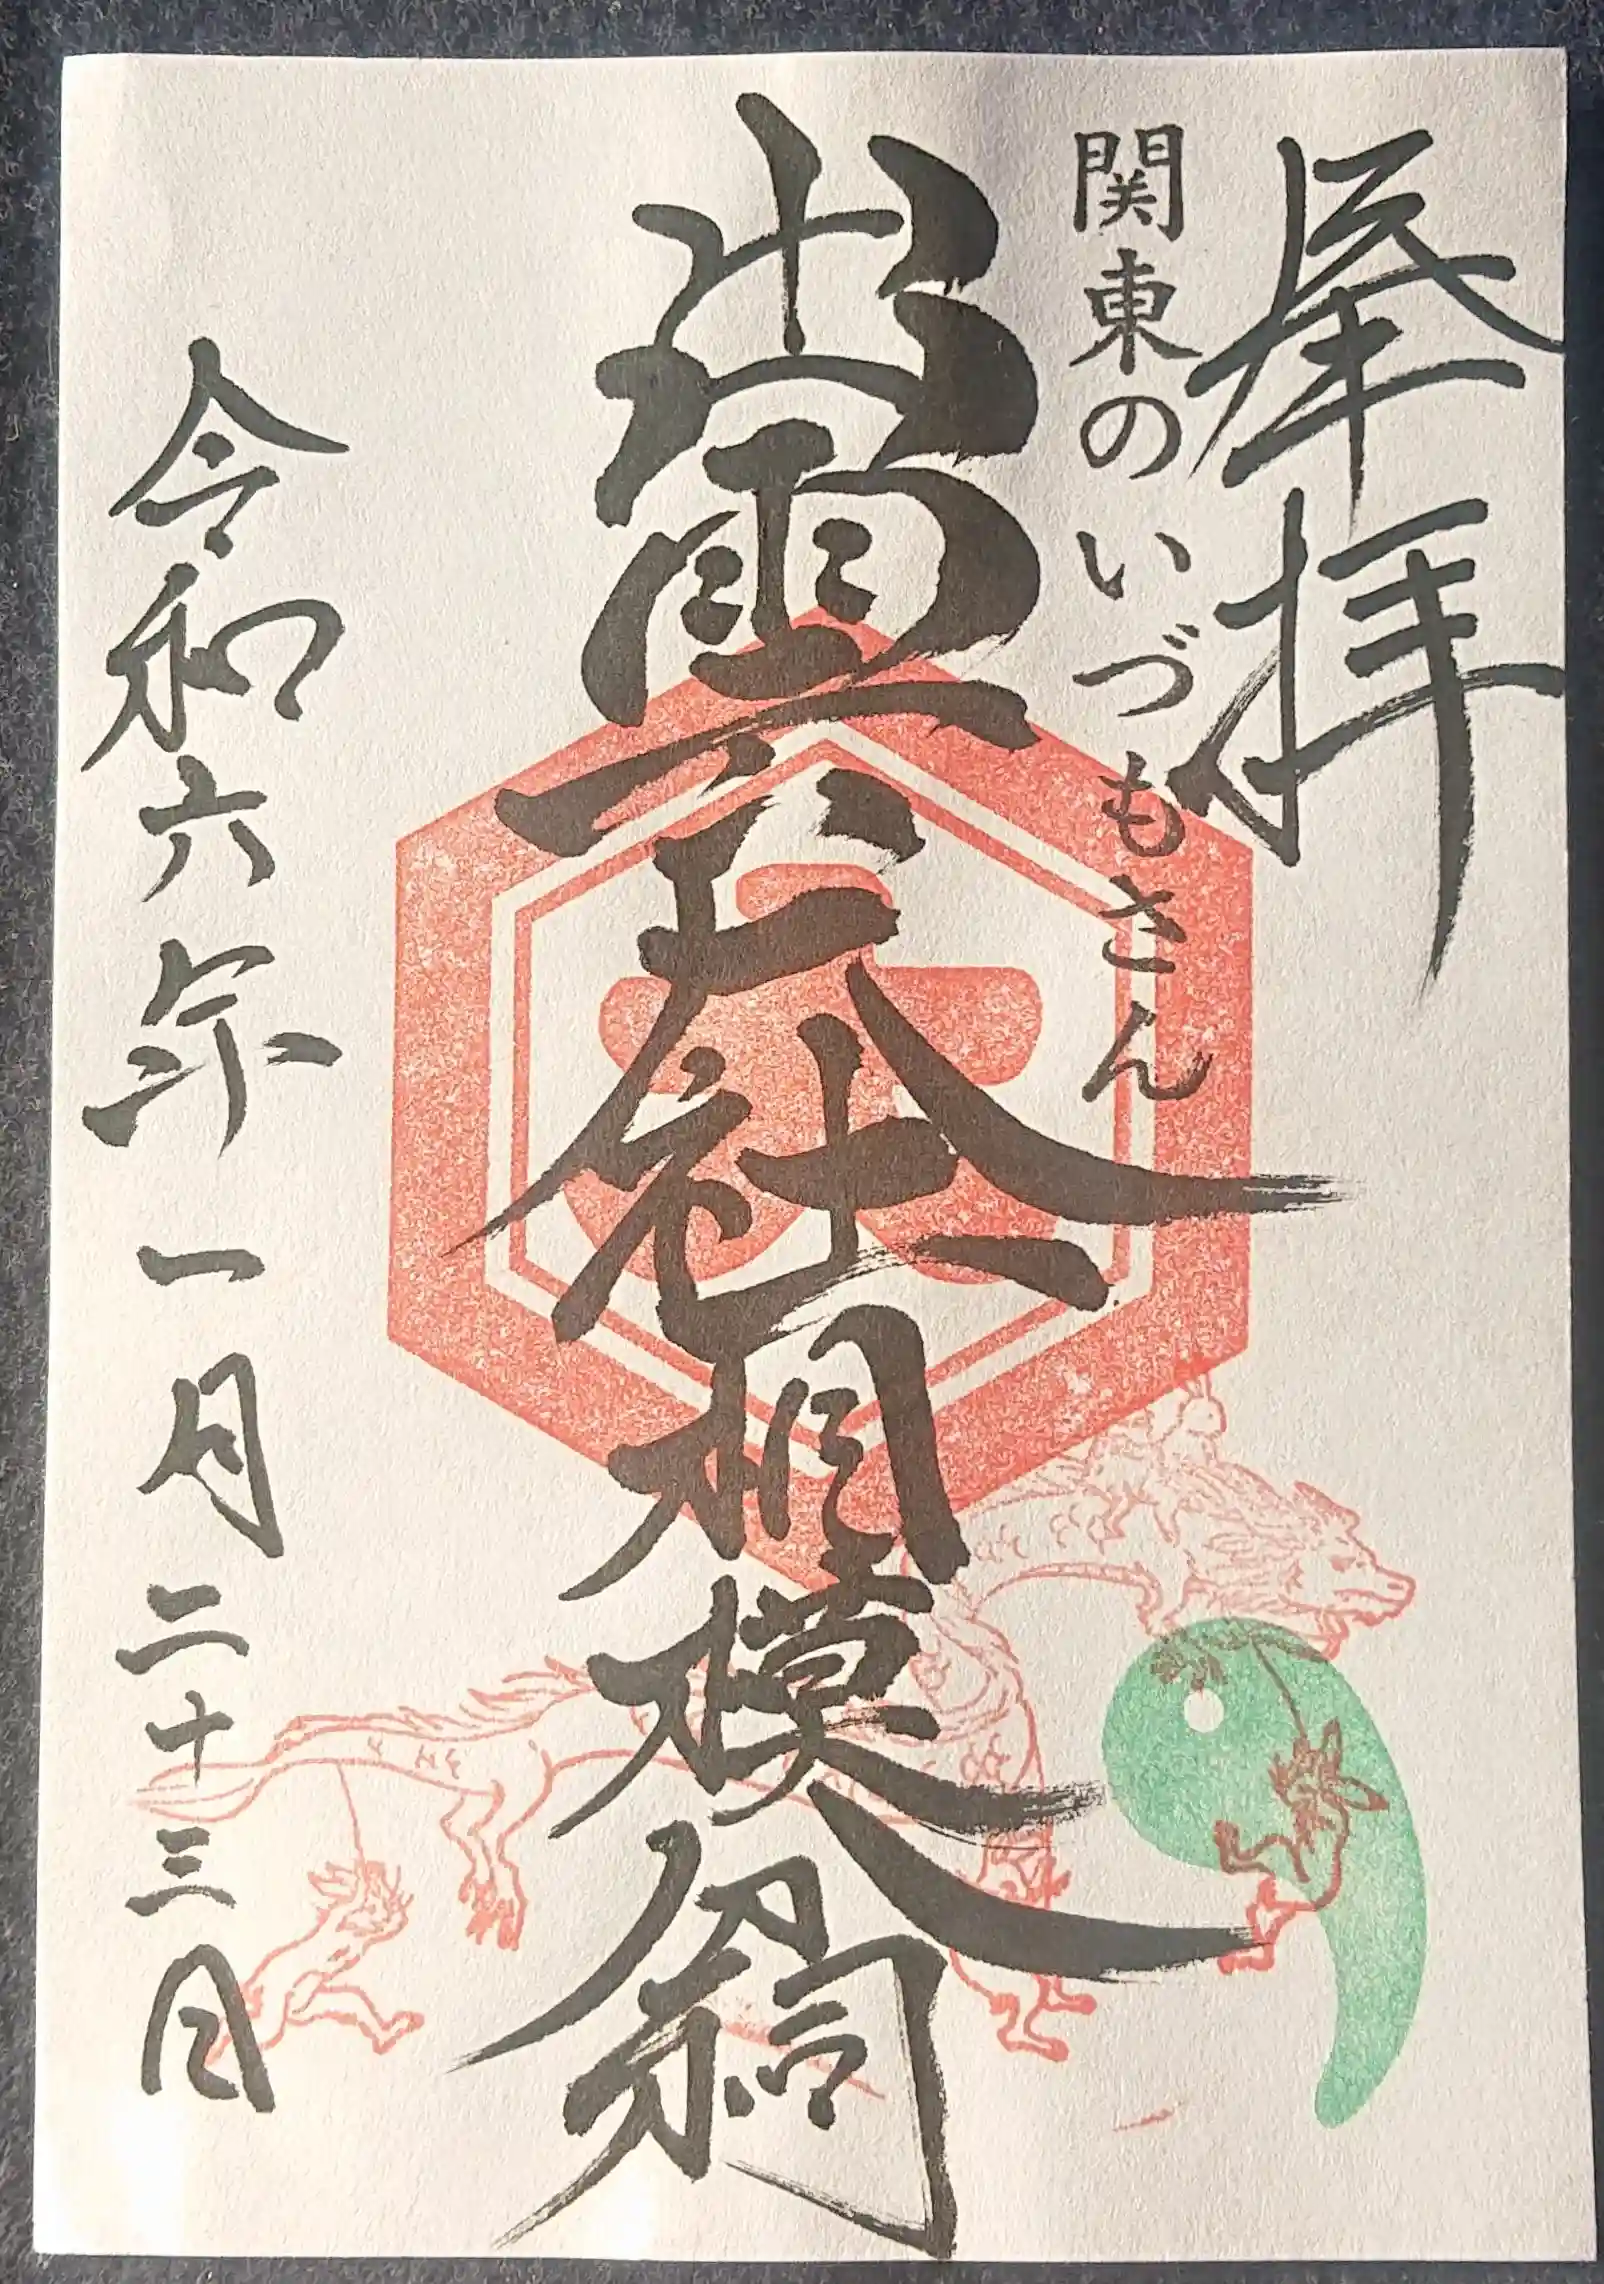 奉拝
関東のいづもさん
出雲大社相模分祠
令和六年一月二十三日
大